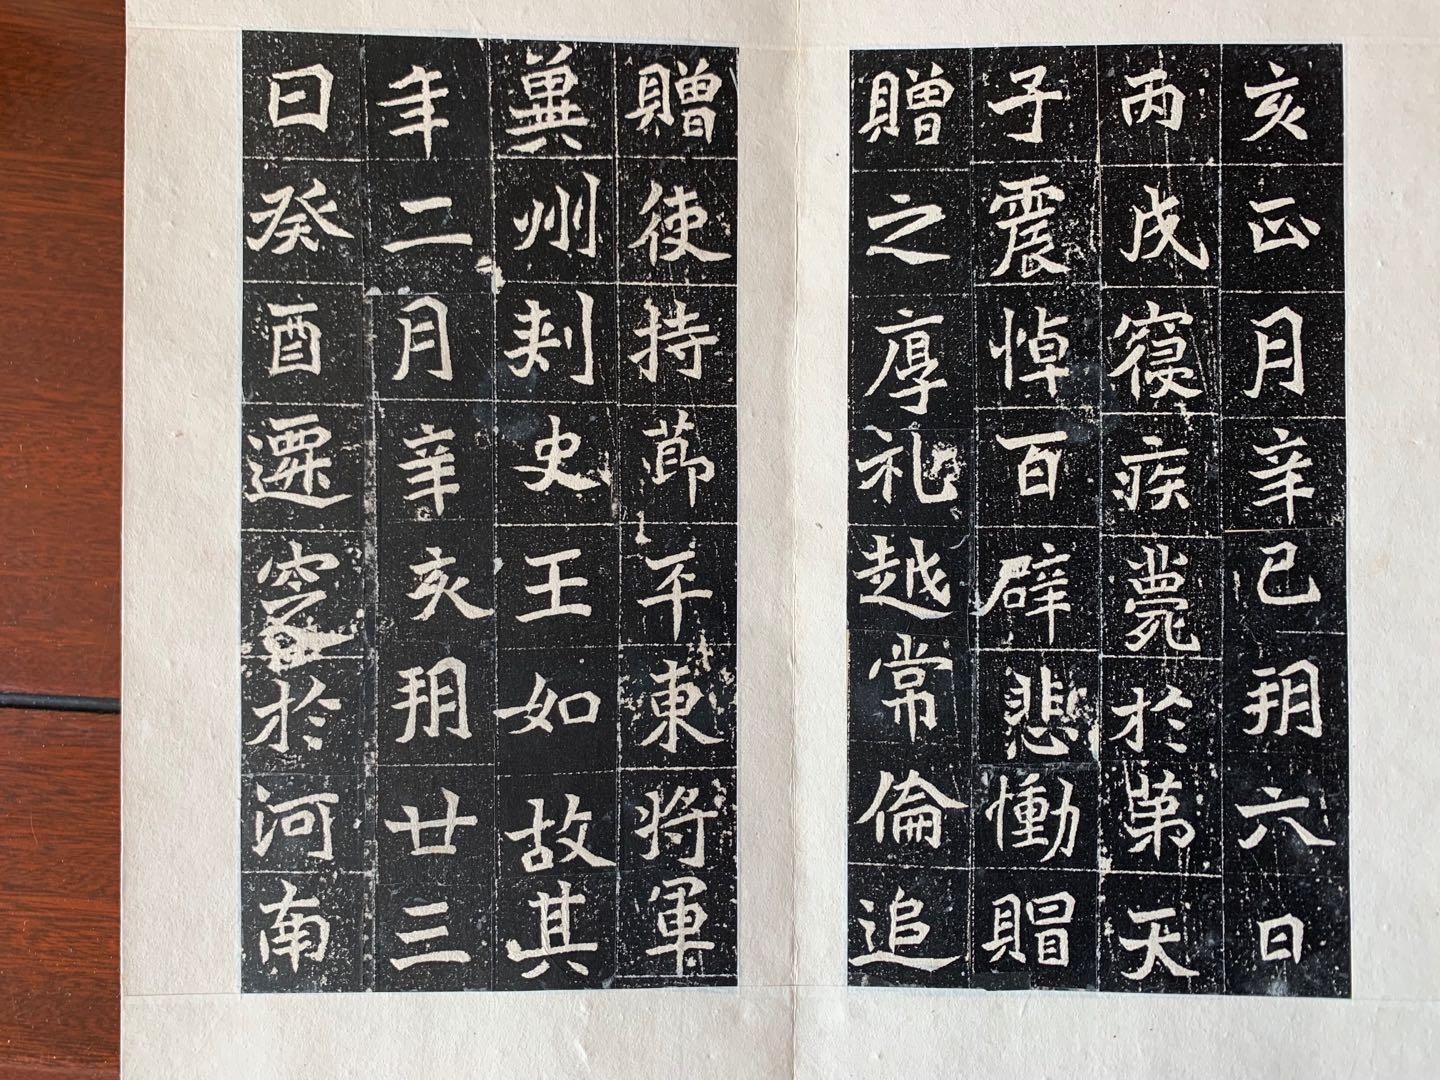 亥正月辛巳朔六日
丙戌寢疾薨於第天
子震悼百辟悲慟賵
贈之厚礼越常倫追
贈使持莭平東將軍
兾州刾史王如故其
年二月辛亥朔廿三
日癸酉遷窆於河南